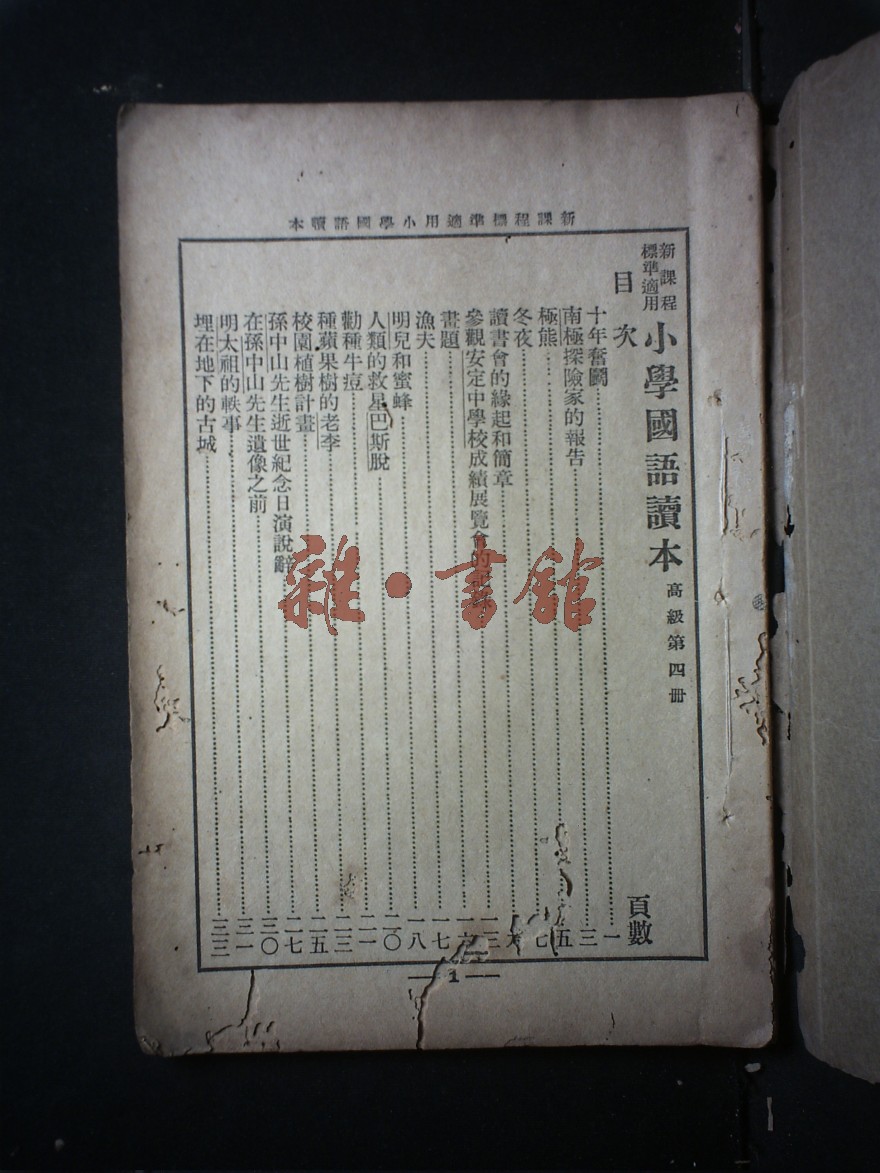 新課程標準適用小學國語讀本
新課程標準適用 小學國語讀本 高級第四冊
目次 頁數
十年奮鬭……一
南極探險家的報告……三
極熊……五
冬夜……七
讀書會的緣起和簡章……
參觀安定中學校成績展覽會的……一三
畫題……一六
漁夫……一七
明兒和蜜蜂……一八
人類的救星巴斯脫……二〇
勸種牛痘……二一
種蘋果樹的老李……二三
校園植樹計畫……二五
孫中山先生逝世紀念日演說辭……二七
在孫中山先生遺像之前……三〇
明太祖的軼事……三一
埋在地下的古城……三三
— 1 —
雜·書館